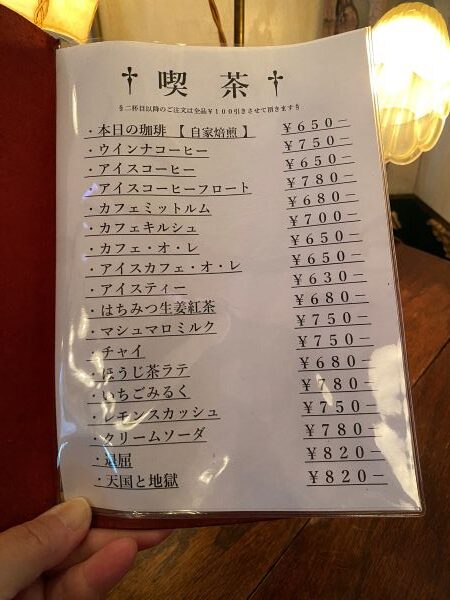 † 喫 茶 †
§二杯目以降のご注文は全品￥100引きさせて頂きます§
・本日の珈琲 【自家焙煎】 ￥650−
・ウインナコーヒー ￥750−
・アイスコーヒー ￥650−
・アイスコーヒーフロート ￥780−
・カフェミットルム ￥680−
・カフェキルシュ ￥700−
・カフェ・オ・レ ￥650−
・アイスカフェ・オ・レ ￥650−
・アイスティー ￥630−
・はちみつ生姜紅茶 ￥680−
・マシュマロミルク ￥750−
・チャイ ￥750−
・ほうじ茶ラテ ￥680−
・いちごみるく ￥780−
・レモンスカッシュ ￥750−
・クリームソーダ ￥780−
・退屈 ￥820−
・天国と地獄 ￥820−